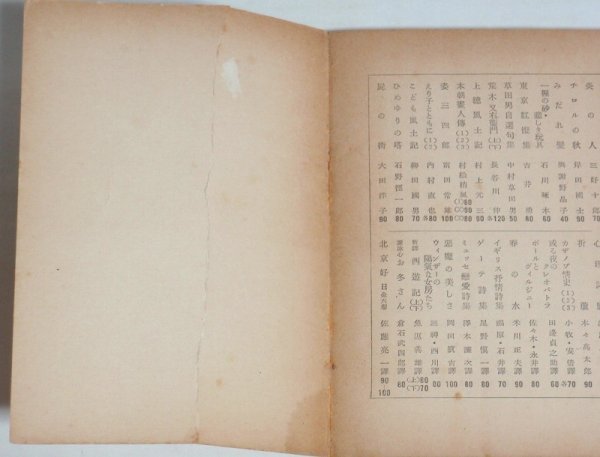 炎の人 三好十郎 80
チロルの秋 岸田國士 90
みだれ髮 與謝野晶子 40
一握の砂・悲しき玩具 石川啄木 60
東京紅燈集 吉井勇 80
草田男自選句集 中村草田男 50
荒木又右衞門(上)(下) 長谷川伸 各120
上總風土記 村上元三 90
本朝畫人傳(1)(2)(3) 村松梢風
姿三四郎 富田常雄 100
えり子とともに(1)(2) 内村直也 各80
こども風土記 柳田國男 70
ひめゆりの塔 石野徑一郎 80
屍の街 大田洋子 80
祈 木々高太郎 90
カザノヴァ情史(1)(2)(3) 小牧・安倍譯 各70
或る夜のクレオパトラ 田邊貞之助譯 60
ポールとヴィルジニー 佐々木・永井譯 80
春の水 米川正夫譯 90
イギリス抒情詩集 石井譯 70
ゲーテ詩集 星野愼一譯 80
ミュッセ戀愛詩集 澤木譲次譯 80
惡魔の美しさ 岡田眞吉譯 100
ウィンザーの陽氣な女房たち 西川譯
新譯西遊記(上)(下) 魚返善雄譯 (上)80 (下)70
お冬さん 倉石武四郎譯 60
北京好日 佐藤亮一譯 90-100